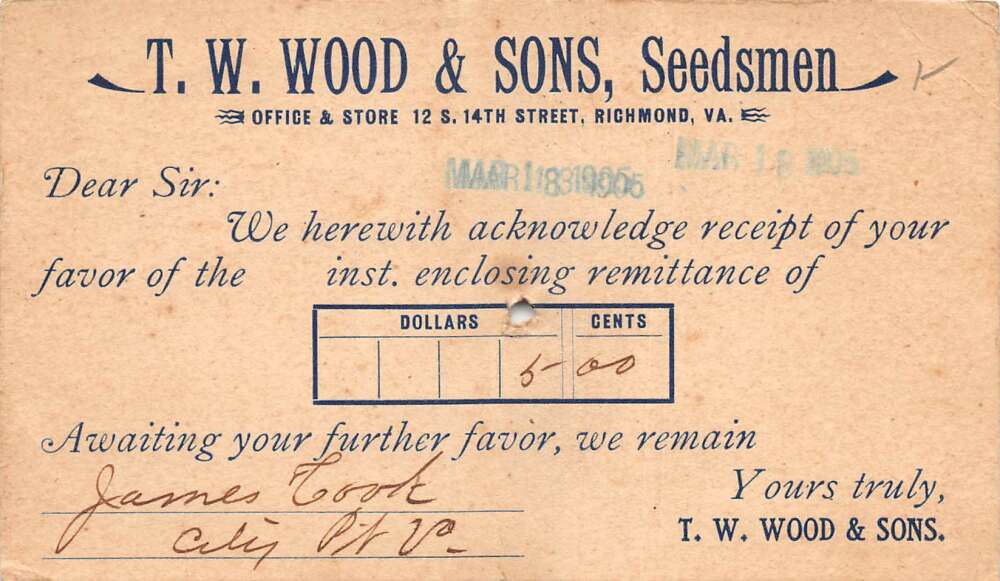 T. W. WOOD & SONS, Seedsmen
OFFICE & STORE 12 S. 14TH STREET, RICHMOND, VA.
MAR 18 1905
Dear Sir:
We herewith acknowledge receipt of your
favor of the inst. enclosing remittance of
DOLLARS CENTS
5 00
Awaiting your further favor, we remain
James Cook
City Pt Va
Yours truly,
T. W. WOOD & SONS.